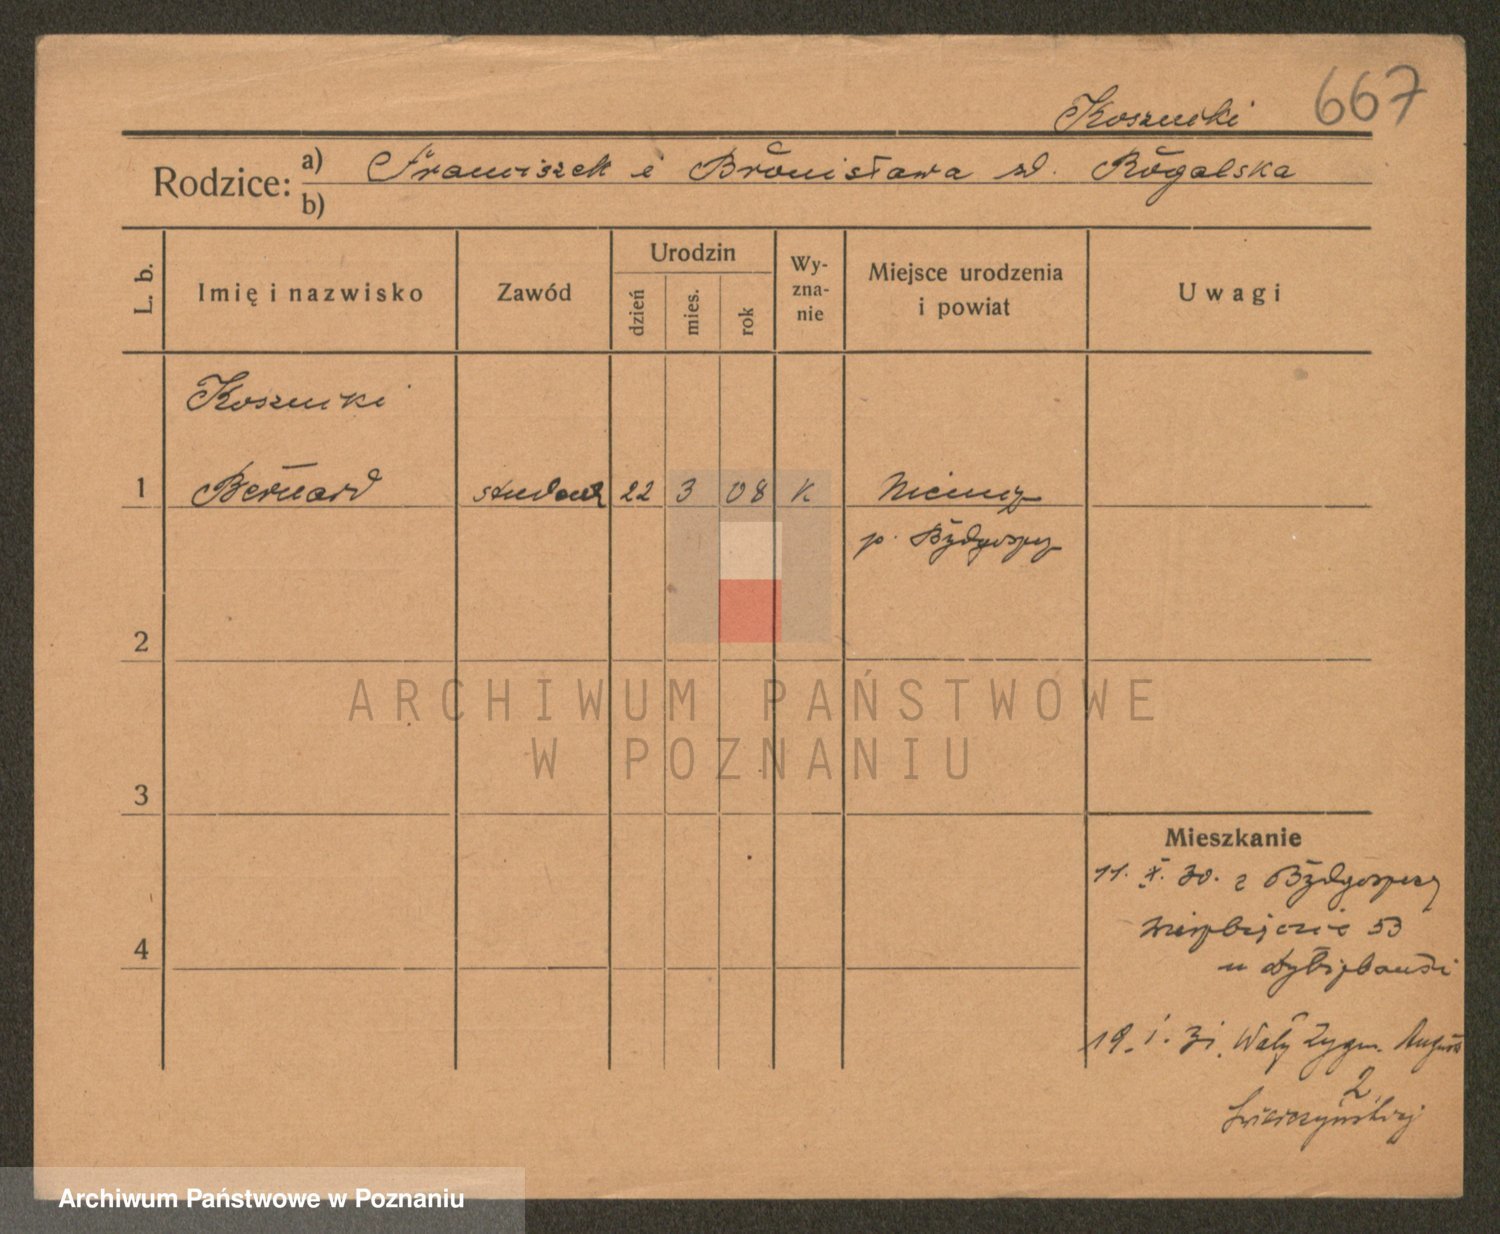 667
Koszucki
Rodzice: a) Franciszek i Bronisława zd. Rogalska
b)
L. b.
Imię i nazwisko
Zawód
Urodzin
dzień
mies.
rok
Wy-
zna-
nie
Miejsce urodzenia
i powiat
Uwagi
Koszucki
1 Bernard student 22 3 08 K
p. Bydgoszcz
2
3
4
Mieszkanie
11. X. 30. z Bydgoszczy
Wierzbięcice 53
u
19. I. 31. Wały Zygm. Augusta
2
ARCHIWUM PAŃSTWOWE
W POZNANIU
Archiwum Państwowe w Poznaniu